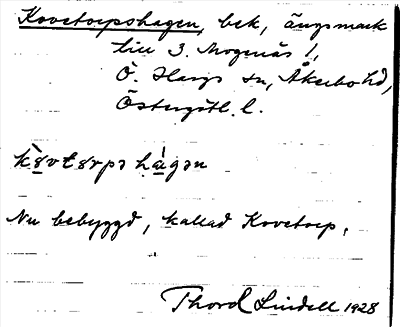 Kovetorpshagen, bek, ängsmark
till 3. Mogenäs 1,
Ö. Hargs sn, Åkerbo hd,
Östergötl. l.
Nu bebyggd, kallad Kovetorp.
Thord Lindell 1928